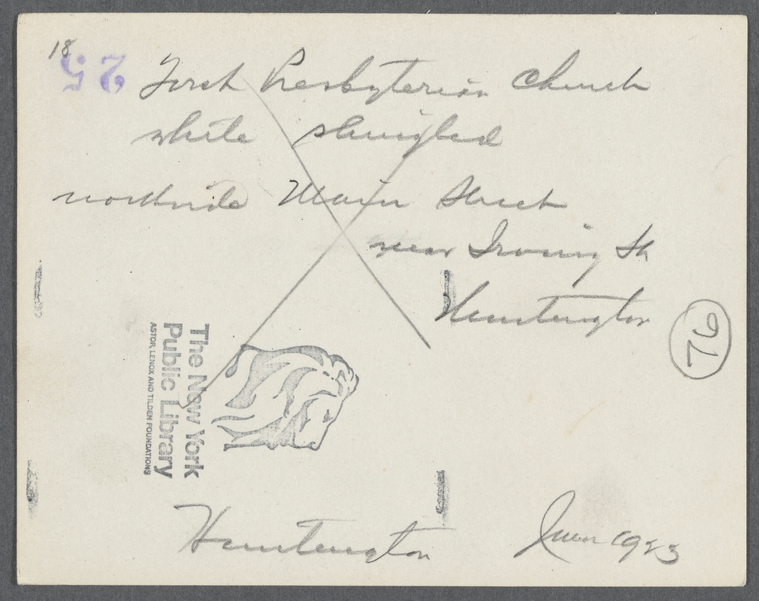 18
25
First Presbyterian Church
white shingled
northside Main Street
near Irving St
Huntington
76
The New York
Public Library
ASTOR, LENOX AND TILDEN FOUNDATIONS
Huntington
June 1923